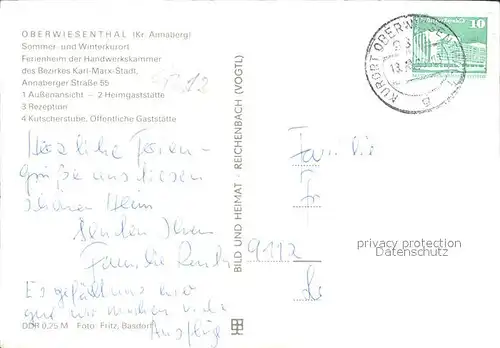 OBERWIESENTHAL (Kr. Annaberg)
Sommer- und Winterkurort
Ferienheim der Handwerkskammer
des Bezirkes Karl-Marx-Stadt,
Annaberger Straße 55
1 Außenansicht – 2 Heimgaststätte
3 Rezeption
4 Kutscherstube, Öffentliche Gaststätte
Herzliche Ferien-
grüße aus diesem
schönen Heim
senden Ihnen
Familie
Es gefällt uns hier
gut wir machen viele
Ausflüge
DDR 0,25 M Foto: Fritz, Basdorf
BILD UND HEIMAT · REICHENBACH (VOGTL)
KURORT OBERWIESENTHAL
10
Familie
9112
privacy protection
Datenschutz